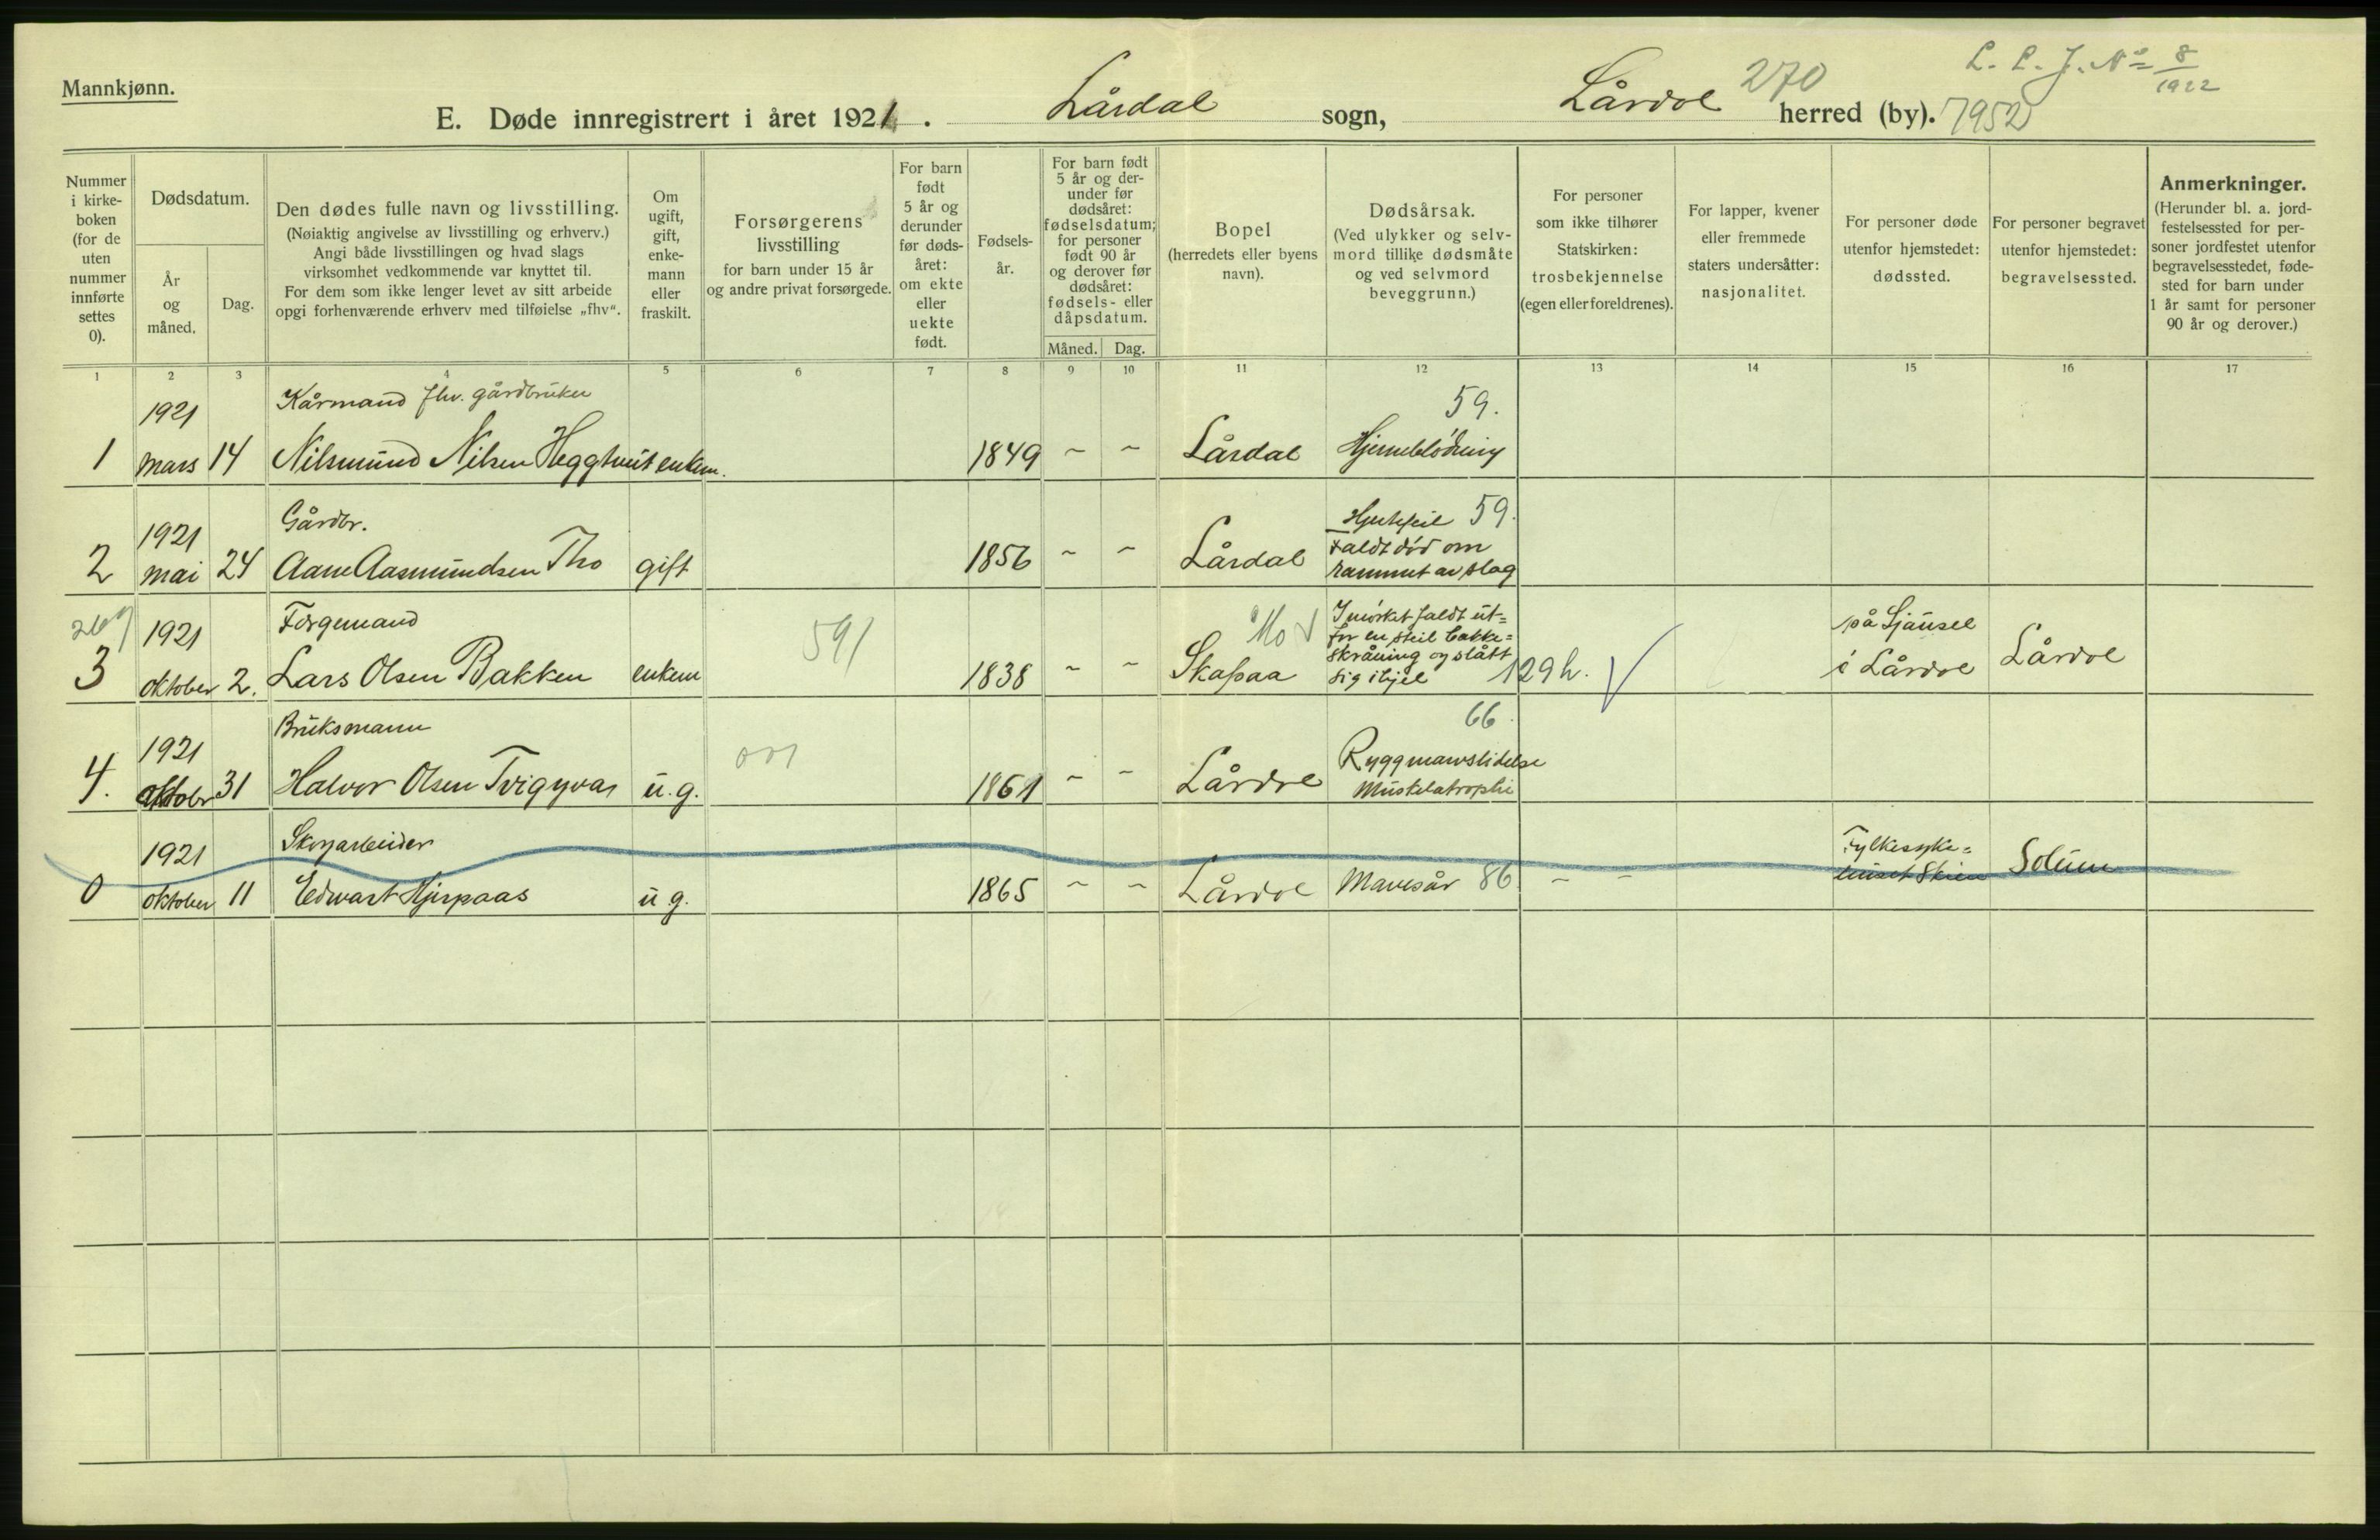 Mannkjønn.
L. L. J. No 8/1922
E. Døde innregistrert i året 1921. Lårdal sogn, Lårdal 270 herred (by). 7952
Nummer i kirke-boken (for de uten nummer innførte settes 0).
Dødsdatum.
År og måned.
Dag.
Den dødes fulle navn og livsstilling.
(Nøiaktig angivelse av livsstilling og erhverv.)
Angi både livsstillingen og hvad slags
virksomhet vedkommende var knyttet til.
For dem som ikke lenger levet av sitt arbeide
opgi forhenværende erhverv med tilføielse „fhv“.
Om ugift, gift, enke-mann eller fraskilt.
Forsørgerens
livsstilling
for barn under 15 år
og andre privat forsørgede.
For barn født 5 år og derunder før døds-året: om ekte eller uekte født.
Fødsels-år.
For barn født 5 år og der-under før dødsåret: fødselsdatum; for personer født 90 år og derover før dødsåret: fødsels- eller dåpsdatum.
Måned. Dag.
Bopel
(herredets eller byens
navn).
Dødsårsak.
(Ved ulykker og selv-
mord tillike dødsmåte
og ved selvmord
beveggrunn.)
For personer
som ikke tilhører
Statskirken:
trosbekjennelse
(egen eller foreldrenes).
For lapper, kvener
eller fremmede
staters undersåtter:
nasjonalitet.
For personer døde
utenfor hjemstedet:
dødssted.
For personer begravet
utenfor hjemstedet:
begravelsessted.
Anmerkninger.
(Herunder bl. a. jord-
festelsessted for per-
soner jordfestet utenfor
begravelsesstedet, føde-
sted for barn under
1 år samt for personer
90 år og derover.)
1 2 3 4 5 6 7 8 9 10 11 12 13 14 15 16 17
1921 Kårmand fhv. gårdbruker 59.
1 mars 14 Nilsmund Nilsen Hegghveit enkem. 1849 ~ ~ Lårdal Hjerneblødning
1921 Gårdbr. Hjertefeil 59.
2 mai 24 Aane Aasmundsen Tho gift 1856 ~ ~ Lårdal Faldt død om
rammet av slag
269 1921 Førgemand 591 Mo I mørket faldt ut=
for en steil bakke= på Sjausel
3 oktober 2. Lars Olsen Bakken enkem 1838 ~ ~ Skafsaa skråning og slått
sig ihjel 129 h. i Lårdal Lårdal
1921 Bruksmann 001 66.
4. oktobr 31 Halvor Olsen Trigyvas u.g. 1861 ~ ~ Lårdal Ryggmarvslidelse
Muskelatrophi
1921 Skogarbeider Fylkessyke=
0 oktober 11 Edvart Hjerpaas u.g. 1865 ~ ~ Lårdal Mavesår 86 ~ ~ huset Skien Solum